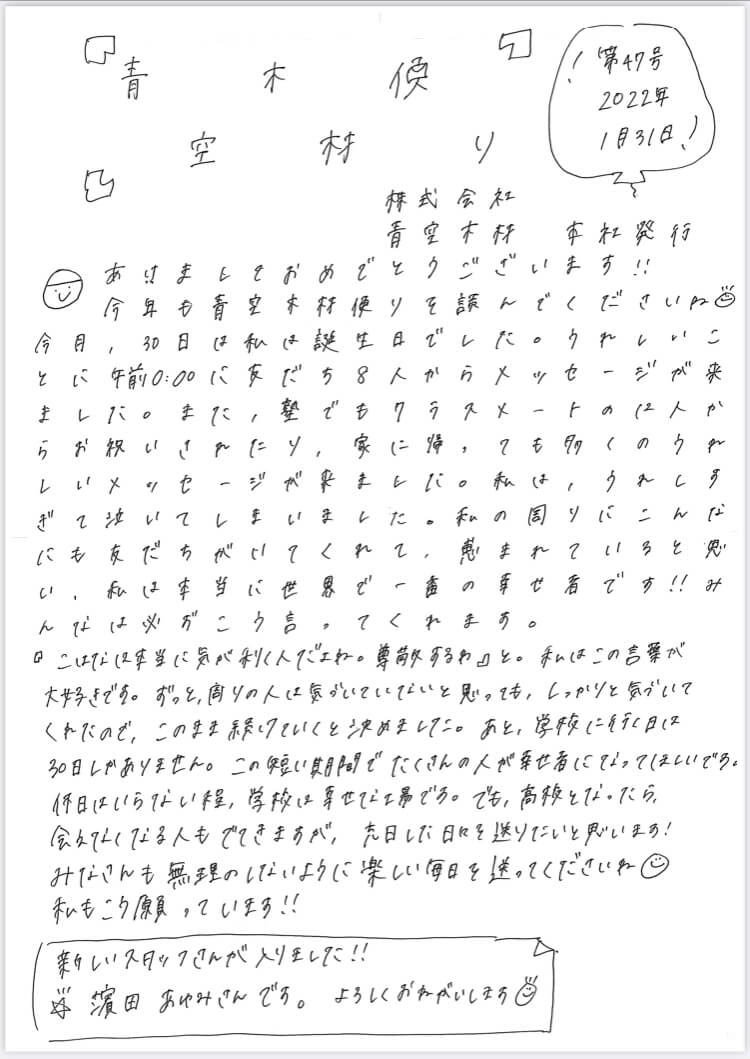 青空木材便り
第47号
2022年
1月31日
株式会社
青空木材 本社発行
あけましておめでとうございます!!
今年も青空木材便りを読んでくださいね
今月、30日は私は誕生日でした。うれしいこ
とに午前0:00に友だち8人からメッセージが来
ました。また、塾でもクラスメートの12人か
らお祝いされたり、家に帰っても多くのうれ
しいメッセージが来ました。私は、うれしす
ぎて泣いてしまいました。私の周りにこんな
にも友だちがいてくれて、恵まれていると思
い、私は本当に世界で一番の幸せ者です!!み
んなは必ずこう言ってくれます。
『こはなは本当に気が利く人だよね。尊敬するわ』と。私はこの言葉が
大好きです。ずっと、周りの人は気づいていないと思っても、しっかりと気づいて
くれたので、このまま続けていくと決めました。あと、学校に行く日は
30日しかありません。この短い期間でたくさんの人が幸せ者になってほしいです。
休日はいらない程、学校は幸せな場です。でも、高校となったら、
会えなくなる人もでてきますが、充日した日々を送りたいと思います!
みなさんも無理のしないように楽しい毎日を送ってくださいね
私もこう願っています!!
新しいスタッフさんが入りました!!
濱田 あゆみさんです。よろしくおねがいします